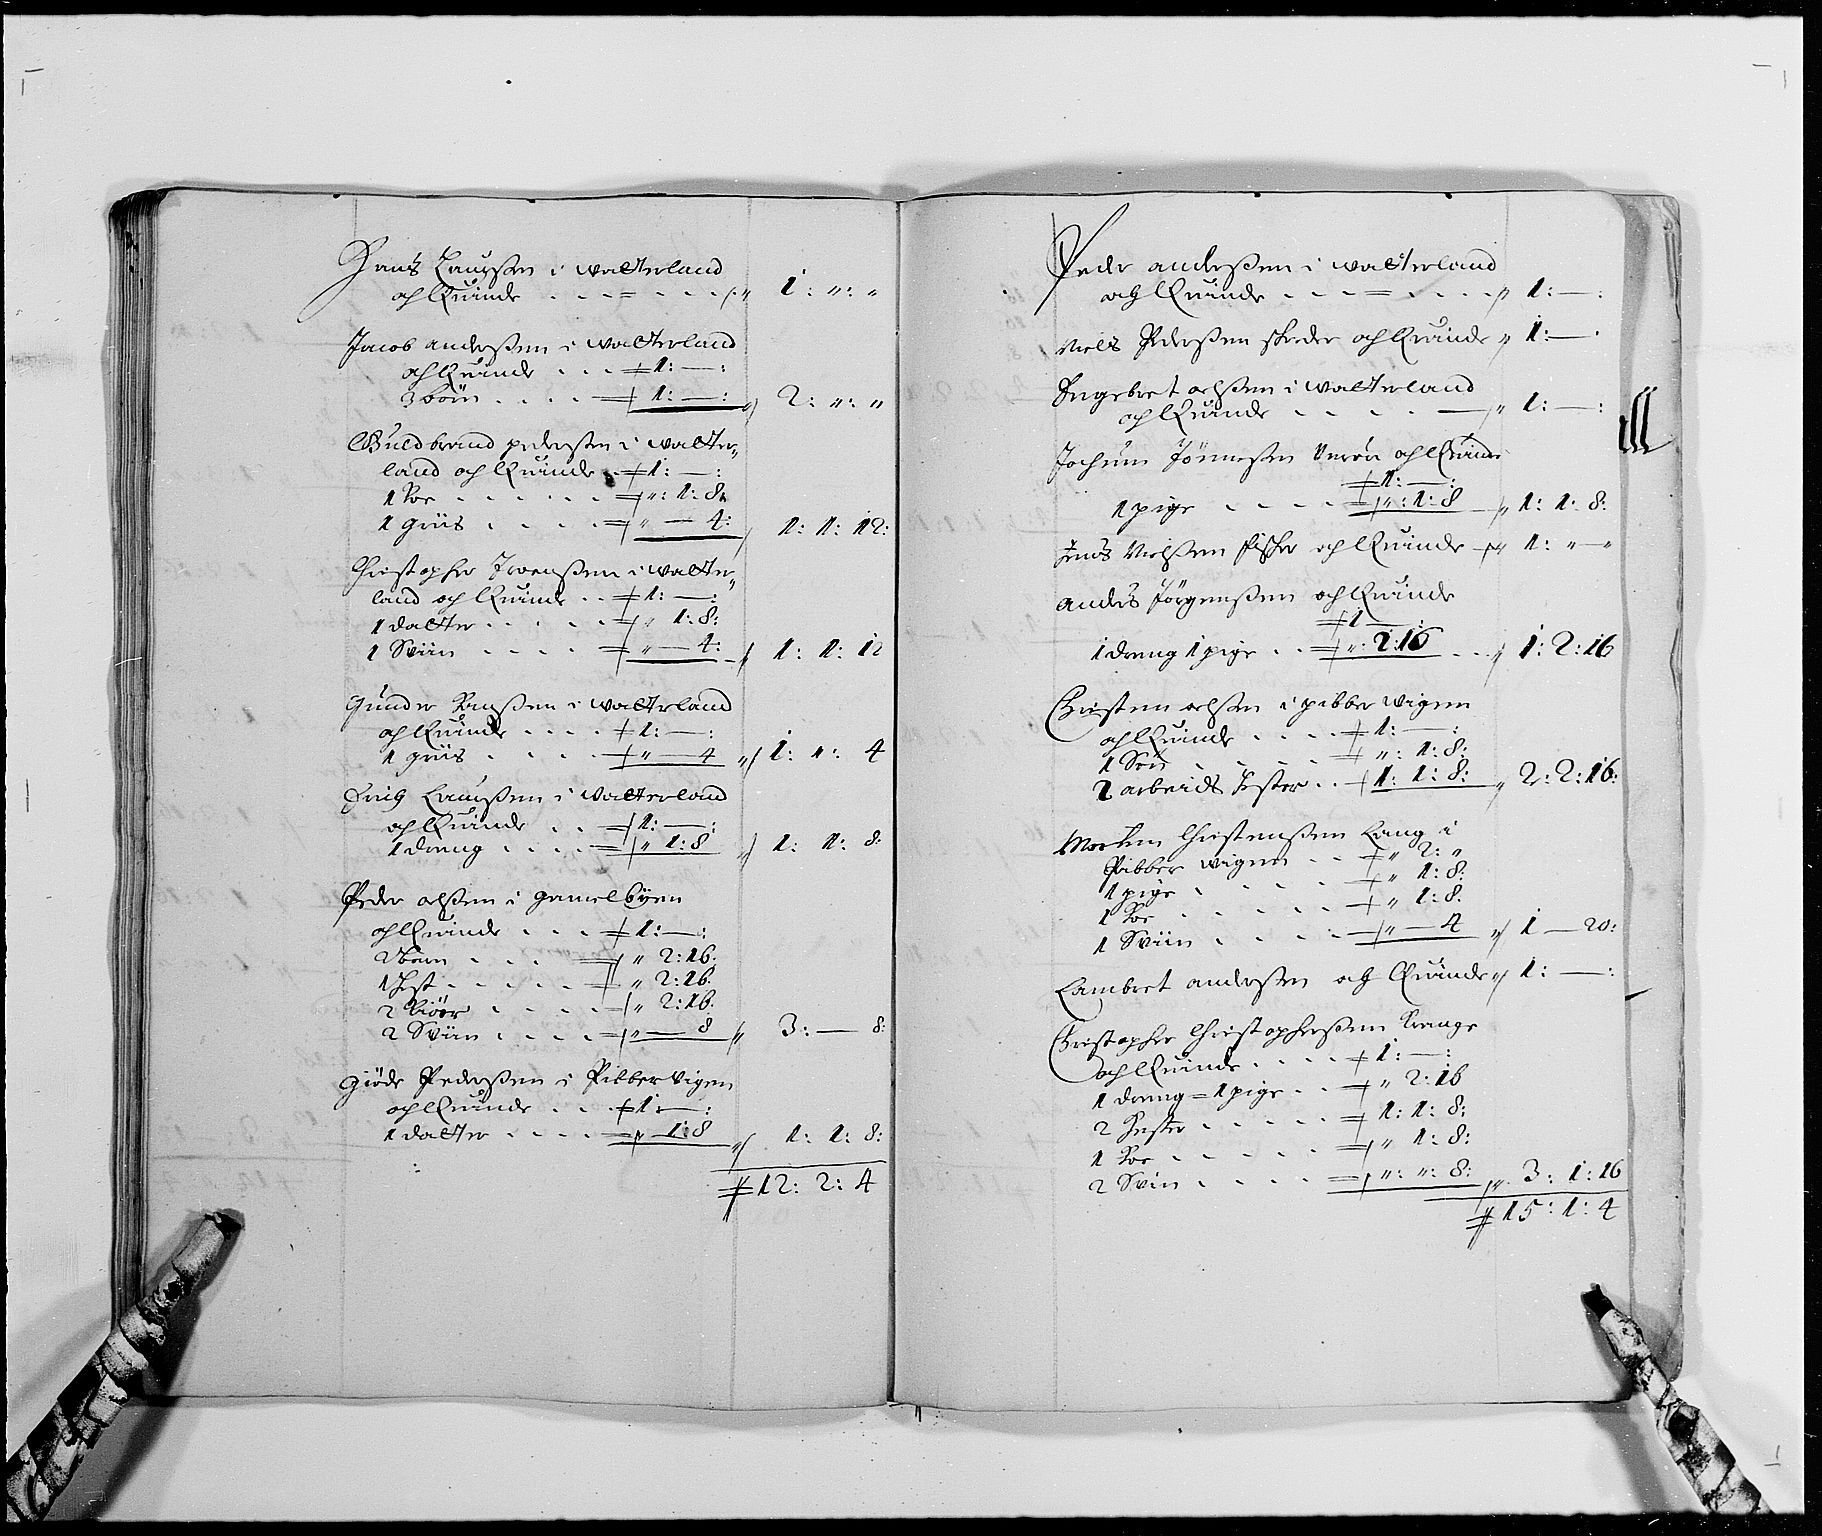 Hans Lauritzsen i Walterland
och Quinde . . . = . . . . 1: ": "
Jacob andersen i Walterland
och Quinde . . . 1: — :
3 börn . . . . 1: — : 2: ": "
Guldbrand pedersen i Walter„
land och Quinde . 1: — :
1 koe . . . . . . ": 1: 8:
1 griis . . . . " — 4: 1: 1: 12:
Christopher Iwersen i Walter„
land och Quinde . . 1: — :
1 datter . . . . . " 1: 8:
1 Sviin . . . . " — 4: 1: 1: 12
Gunder Hansen i Walterland
och Quinde . . . . 1: — :
1 griis . . . . " — 4 1: ": 4
Erich Lauritzsen i Walterland
och Quinde . . 1: — :
1 dreng . . . . " 1: 8 1: 1: 8:
Peder olsen i gamelbyen
och Quinde . . . 1: — :
2 börn . . . . " 2: 16:
1 Hest . . . . . " 2: 16:
2 kiöer . . . . " 2: 16:
2 Sviin . . . . " — 8 3: — 8:
Giöde Pedersen i Pibbervigen
och Quinde . . . 1: — :
1 datter . . . . " 1: 8 1: 1: 8:
12: 2: 4
Peder andersen i Walterland
och Quinde . . . = . . . . 1: — :
Niels Pedersen och Quinde 1: — :
Engebret olsen i Walterland
och Quinde . . . . 1: — :
Jochum Jönnesen och Quinde
1: — :
1 pige . . . . ": 1: 8 1: 1: 8:
Jens Nielsen fischer och Quinde 1: " — "
Anders Jörgensen och Quinde
1 — :
1 dreng 1 pige . . ": 2: 16 1: 2: 16
Christen olsen i pibber wigen
och Quinde . . . . 1: — :
1 Sön . . . . ": 1: 8:
2 arbeids Hester . . 1: 1: 8: 2: 2: 16:
Morten Christensen Lang i
Pibber wigen . . . " 2: "
1 pige . . . . " 1: 8:
1 koe . . . . " 1: 8:
1 Sviin . . . . " — 4 1 — 20:
Lambret andersen och Quinde 1: — :
Christopher Christophersen Krange
och Quinde . . . . 1: — :
1 dreng = 1 pige . . " 2: 16
2 Hester . . . . . 1: 1: 8:
1 koe . . . . . " 1: 8:
2 Sviin . . . . ": ": 8: 3: 1: 16
15: 1: 4